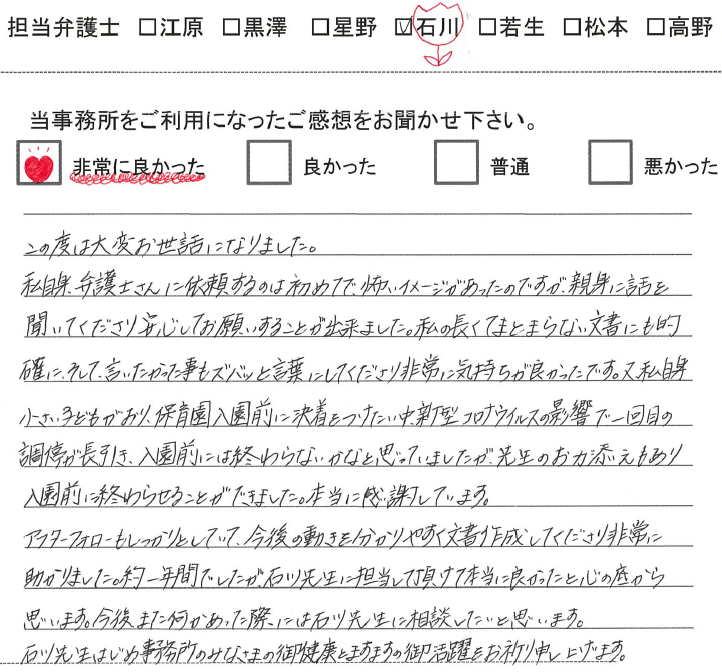 担当弁護士 □江原 □黒澤 □星野 ☑石川 □若生 □松本 □高野
当事務所をご利用になったご感想をお聞かせ下さい。
非常に良かった 良かった 普通 悪かった
この度は大変お世話になりました。
私自身、弁護士さんに依頼するのは初めてで怖いイメージがあったのですが、親身に話を
聞いてくださり安心してお願いすることが出来ました。私の長くてまとまらない文書にも的
確に、そして、言いたかった事もズバッと言葉にしてくださり非常に気持ちが良かったです。又私自身
小さい子どもがおり、保育園入園前に決着をつけたい中、新型コロナウイルスの影響で一回目の
調停が長引き、入園前には終わらないかなと思っていましたが、先生のお力添えもあり
入園前に終わらせることができました。本当に感謝しています。
アフターフォローもしっかりとしていて、今後の動きを分かりやすく文書作成してくださり非常に
助かりました。約一年間でしたが、石川先生に担当して頂けて本当に良かったと心の底から
思います。今後また何かあった際には石川先生に相談したいと思います。
石川先生はじめ事務所のみなさまの御健康とますますの御活躍をお祈り申し上げます。